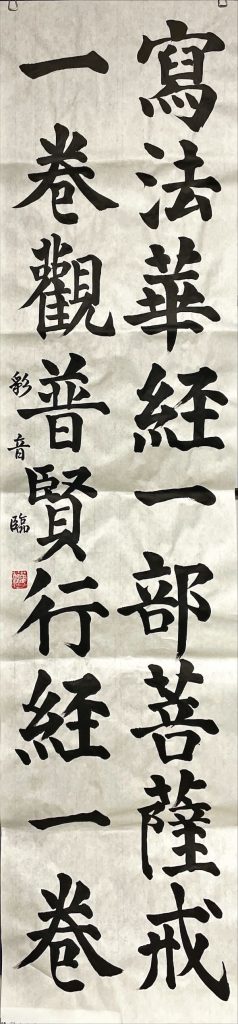 寫法華経一部菩薩戒
一巻觀普賢行経一巻
彩音臨